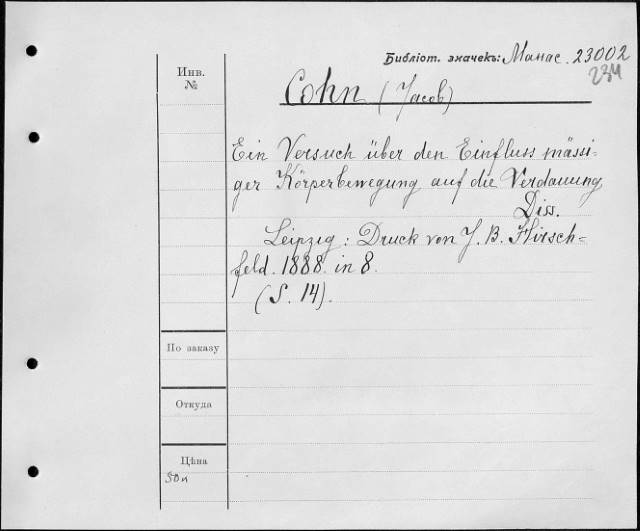 Библіот. значекъ: Манас. 23002
234
Инв.
№
Cohn (Jacob)
Ein Versuch über den Einfluss mässi-
ger Körperbewegung auf die Verdauung
Diss.
Leipzig: Druck von J. B. Hirsch-
feld. 1888. in 8.
(S. 14).
По заказу
Откуда
Цѣна
50 к